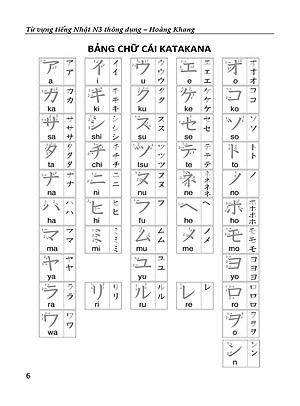 Từ vựng tiếng Nhật N3 thông dụng – Hoàng Khang
BẢNG CHỮ CÁI KATAKANA
ア イ ウ エ オ
a i u e o
カ キ ク ケ コ
ka ki ku ke ko
サ シ ス セ ソ
sa shi su se so
タ チ ツ テ ト
ta chi tsu te to
ナ ニ ヌ ネ ノ
na ni nu ne no
ハ ヒ フ ヘ ホ
ha hi fu he ho
マ ミ ム メ モ
ma mi mu me mo
ヤ ユ ヨ
ya yu yo
ラ リ ル レ ロ
ra ri ru re ro
ワ ヲ
wa o
ン
n
6